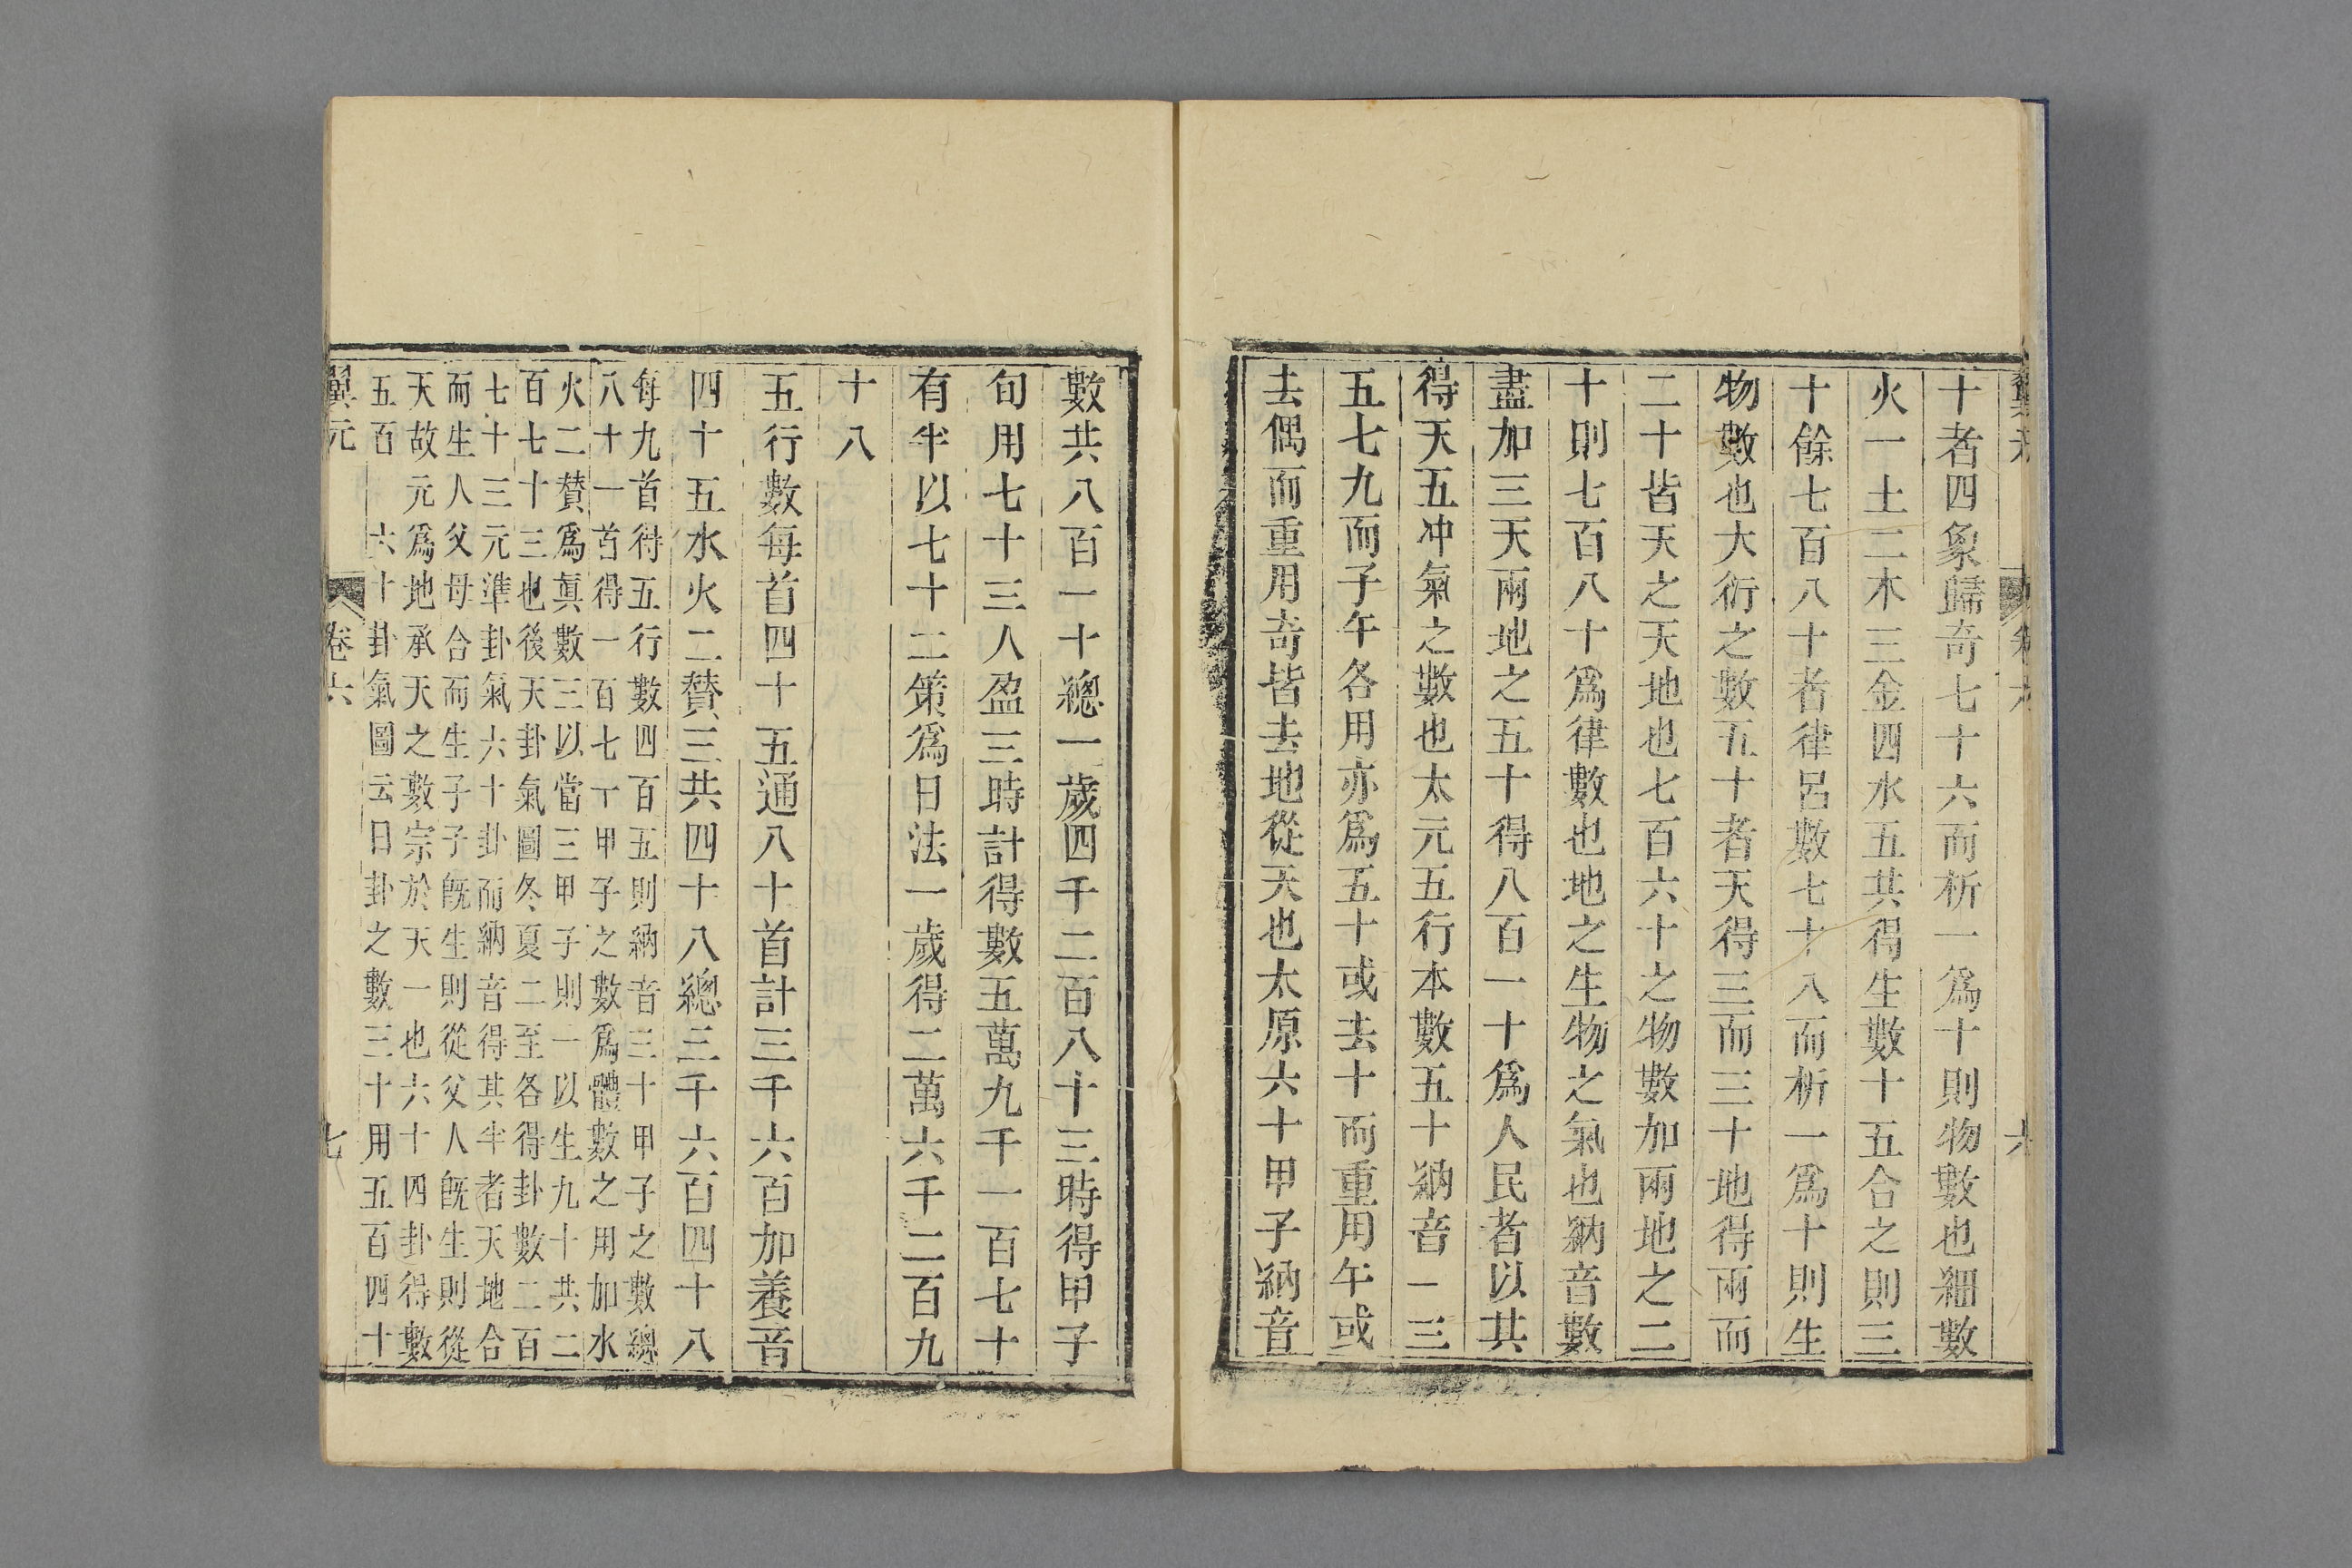 十者四象歸奇七十六而析一爲十則物數也細數
火一土二木三金四水五共得生數十五合之則三
十餘七百八十者律呂數七十八而析一爲十則生
物數也大衍之數五十者天得三而三十地得兩而
二十皆天之天地也七百六十之物數加兩地之二
十則七百八十爲律數也地之生物之氣也納音數
盡加三天兩地之五十得八百一十爲人民者以其
得天五冲氣之數也太元五行本數五十納音一三
五七九而子午各用亦爲五十或去十而重用午或
去偶而重用奇皆去地從天也太原六十甲子納音
數共八百一十總一歲四千二百八十三時得甲子
旬用七十三人盈三時計得數五萬九千一百七十
有半以七十二策爲日法一歲得二萬六千二百九
十八
五行數每首四十五通八十首計三千六百加養首
四十五水火二贊三共四十八總三千六百四十八
每九首得五行數四百五則納音三十甲子之數總
八十一首得一百七丅甲子之數爲體數之用加水
火二贊爲眞數三以當三甲子則一以生九十共二
百七十三也後天卦氣圖冬夏二至各得卦數二百
七十三元準卦氣六十卦而納音得其半者天地合
而生人父母合而生子子旣生則從父人旣生則從
天故元爲地承天之數宗於天一也六十四卦得數
五百　六十卦氣圖云日卦之數三十用五百四十
翼元　卷六　七